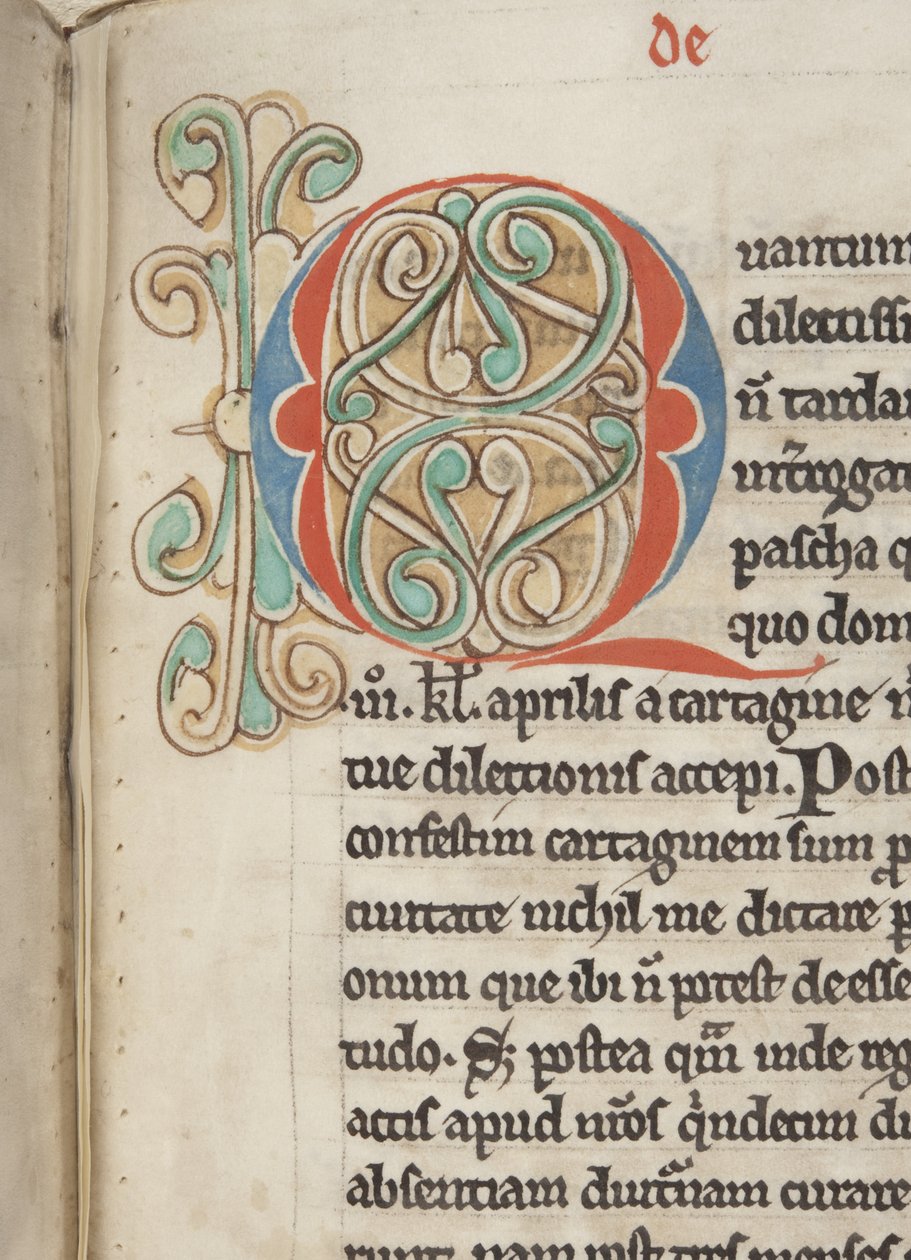 de
Quantum
dilectissi
n̄ tardar
int̄rogat
pascha q
quo dom
.iii. kl. aprilis a cartagine n̄
tue dilectionis accepi. Post
confestim cartaginem sum p
ciuitate nichil me dictare p
onum que ibi n̄ potest deesse
tudo. S; postea qm̄ inde reg
actis apud nr̄os qͥndecim di
absentiam diut̄nam curare
runt. nam